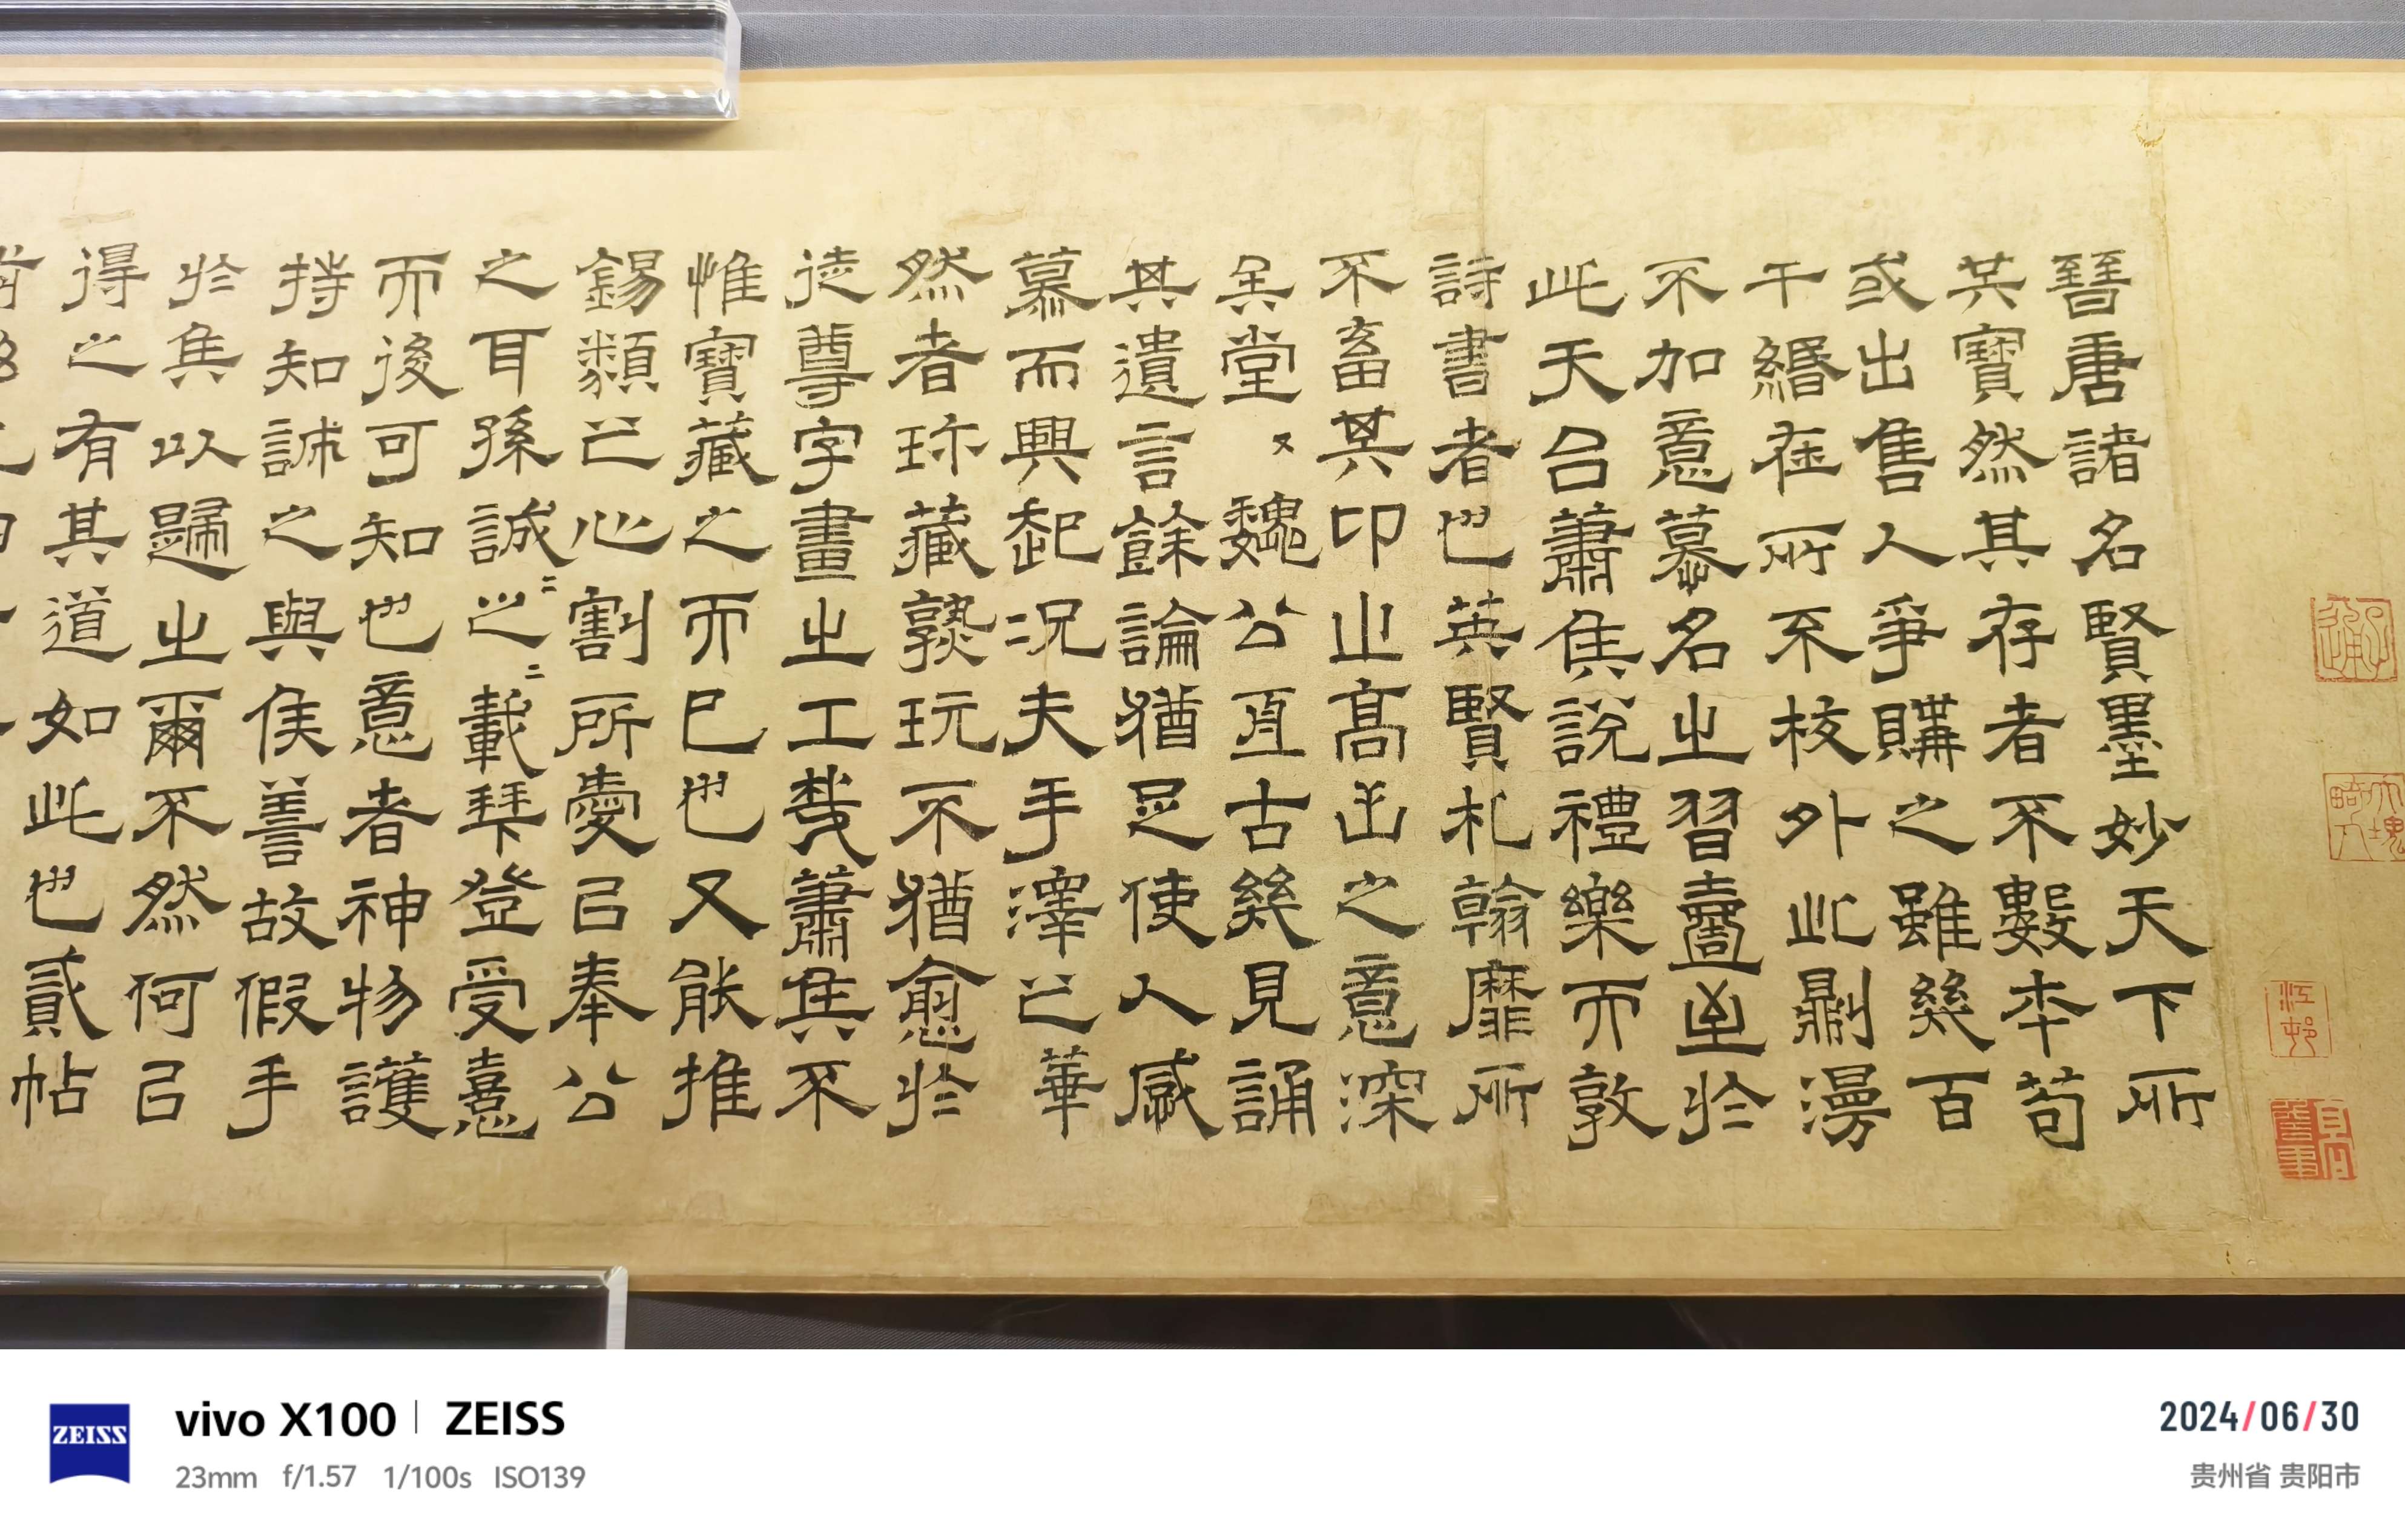 晉唐諸名賢墨妙天下所
共寶然其存者不數本苟
或出售人爭購之雖幾百
千緡在所不校外此剔漫
不加意慕名之習於
此天台蕭侯說禮樂而敦
詩書者也英賢札翰靡所
不畜其卬止高山之意深
矣堂〻魏公直古幾見誦
其遺言餘論猶足使人感
慕而興起況夫手澤之華
然者珎藏孰玩不猶愈於
徒尊字畫之工哉蕭侯不
惟寶藏之而已也又能推
錫類之心割所愛㠯奉公
之耳孫誠〻之〻載拜登受憙
而後可知也意者神物護
持知誠之與侯善故假手
於侯以歸之爾不然何㠯
得之有其道如此也貳帖
江邨
ZEISS
vivo X100 | ZEISS
23mm f/1.57 1/100s ISO139
2024/06/30
贵州省 贵阳市